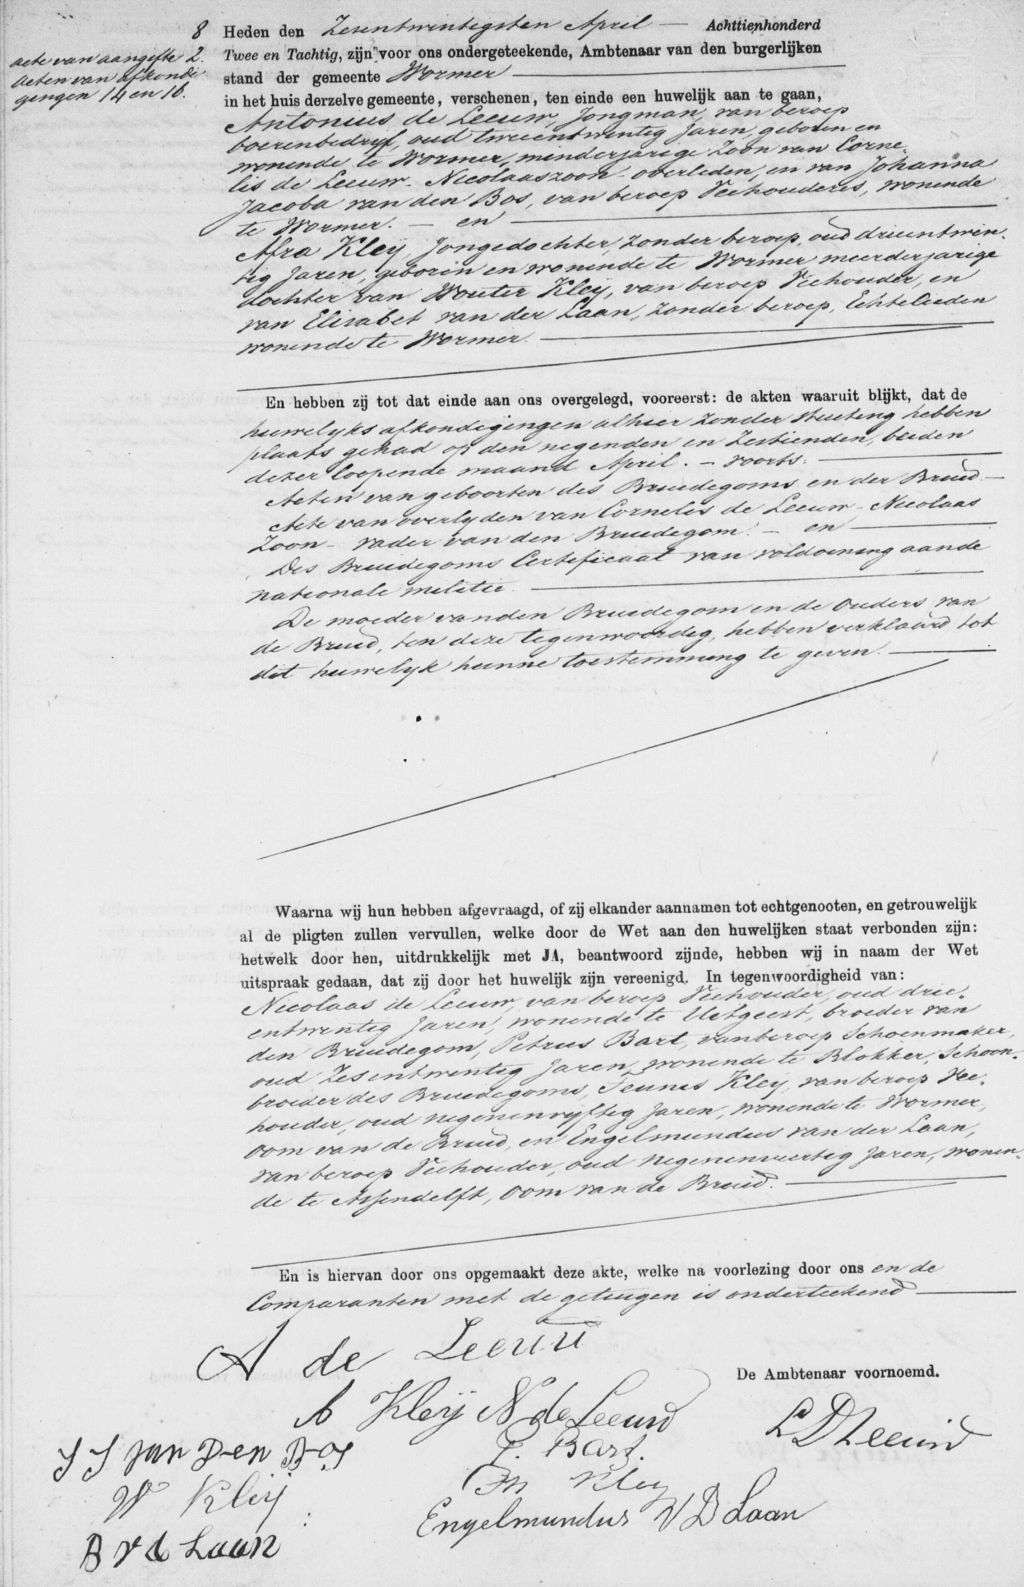 8
acte van aangifte 2.
Acten van afkondi
gingen 14 en 16.
Heden den Zesentwintigsten April — Achttienhonderd
Twee en Tachtig, zijn voor ons ondergeteekende, Ambtenaar van den burgerlijken
stand der gemeente Wormer
in het huis derzelve gemeente, verschenen, ten einde een huwelijk aan te gaan,
Antonius de Leeuw, Jongman, van beroep
boerenbedrijf, oud tweeentwintig Jaren, geboren en
wonende te Wormer, minderjarige Zoon van Corne-
lis de Leeuw - Nicolaaszoon - overleden, en van Johanna
Jacoba van den Bos, van beroep Veehouderes, wonende
te Wormer. — en
Afra Kleij Jongedochter, zonder beroep, oud drieentwin-
tig Jaren, geboren en wonende te Wormer meerderjarige
dochter van Wouter Kleij, van beroep Veehouder, en
van Elisabet van der Laan, zonder beroep, Echtelieden
wonende te Wormer. —
En hebben zij tot dat einde aan ons overgelegd, vooreerst: de akten waaruit blijkt, dat de
huwelyks afkondigingen alhier zonder stuiting hebben
plaats gehad op den negenden en Zestienden, beiden
dezer loopende maand April. — voorts:
Acten van geboorten des Bruidegoms en der Bruid —
Acte van overlyden van Cornelis de Leeuw - Nicolaas
Zoon - vader van den Bruidegom. — en
Des Bruidegoms Certificaat van voldoening aan de
nationale militie.
De moeder van den Bruidegom en de Ouders van
de Bruid, ten deze tegenwoordig, hebben verklaard tot
dit huwelyk hunne toestemming te geven. —
Waarna wij hun hebben afgevraagd, of zij elkander aannamen tot echtgenooten, en getrouwelijk
al de pligten zullen vervullen, welke door de Wet aan den huwelijken staat verbonden zijn:
hetwelk door hen, uitdrukkelijk met JA, beantwoord zijnde, hebben wij in naam der Wet
uitspraak gedaan, dat zij door het huwelijk zijn vereenigd. In tegenwoordigheid van:
Nicolaas de Leeuw, van beroep Veehouder, oud drie-
entwintig Jaren, wonende te Uitgeest, broeder van
den Bruidegom, Petrus Bart, van beroep Schoenmaker,
oud Zesentwintig Jaren, wonende te Blokker, Schoon-
broeder des Bruidegoms, Teunis Kleij, van beroep Vee-
houder, oud negenenvyftig Jaren, wonende te Wormer,
Oom van de Bruid, en Engelmundus van der Laan,
van beroep Veehouder, oud negenenveertig Jaren, wonen-
de te Assendelft, Oom van de Bruid. —
En is hiervan door ons opgemaakt deze akte, welke na voorlezing door ons en de
Comparanten met de getuigen is onderteekend —
A de Leeuw
De Ambtenaar voornoemd.
A Kleij N de Leeuw
J J van Den Bos
P. Bart.
L D Leeuw
W Kleij
Kleij
Engelmundus V D Laan
B v d Laan